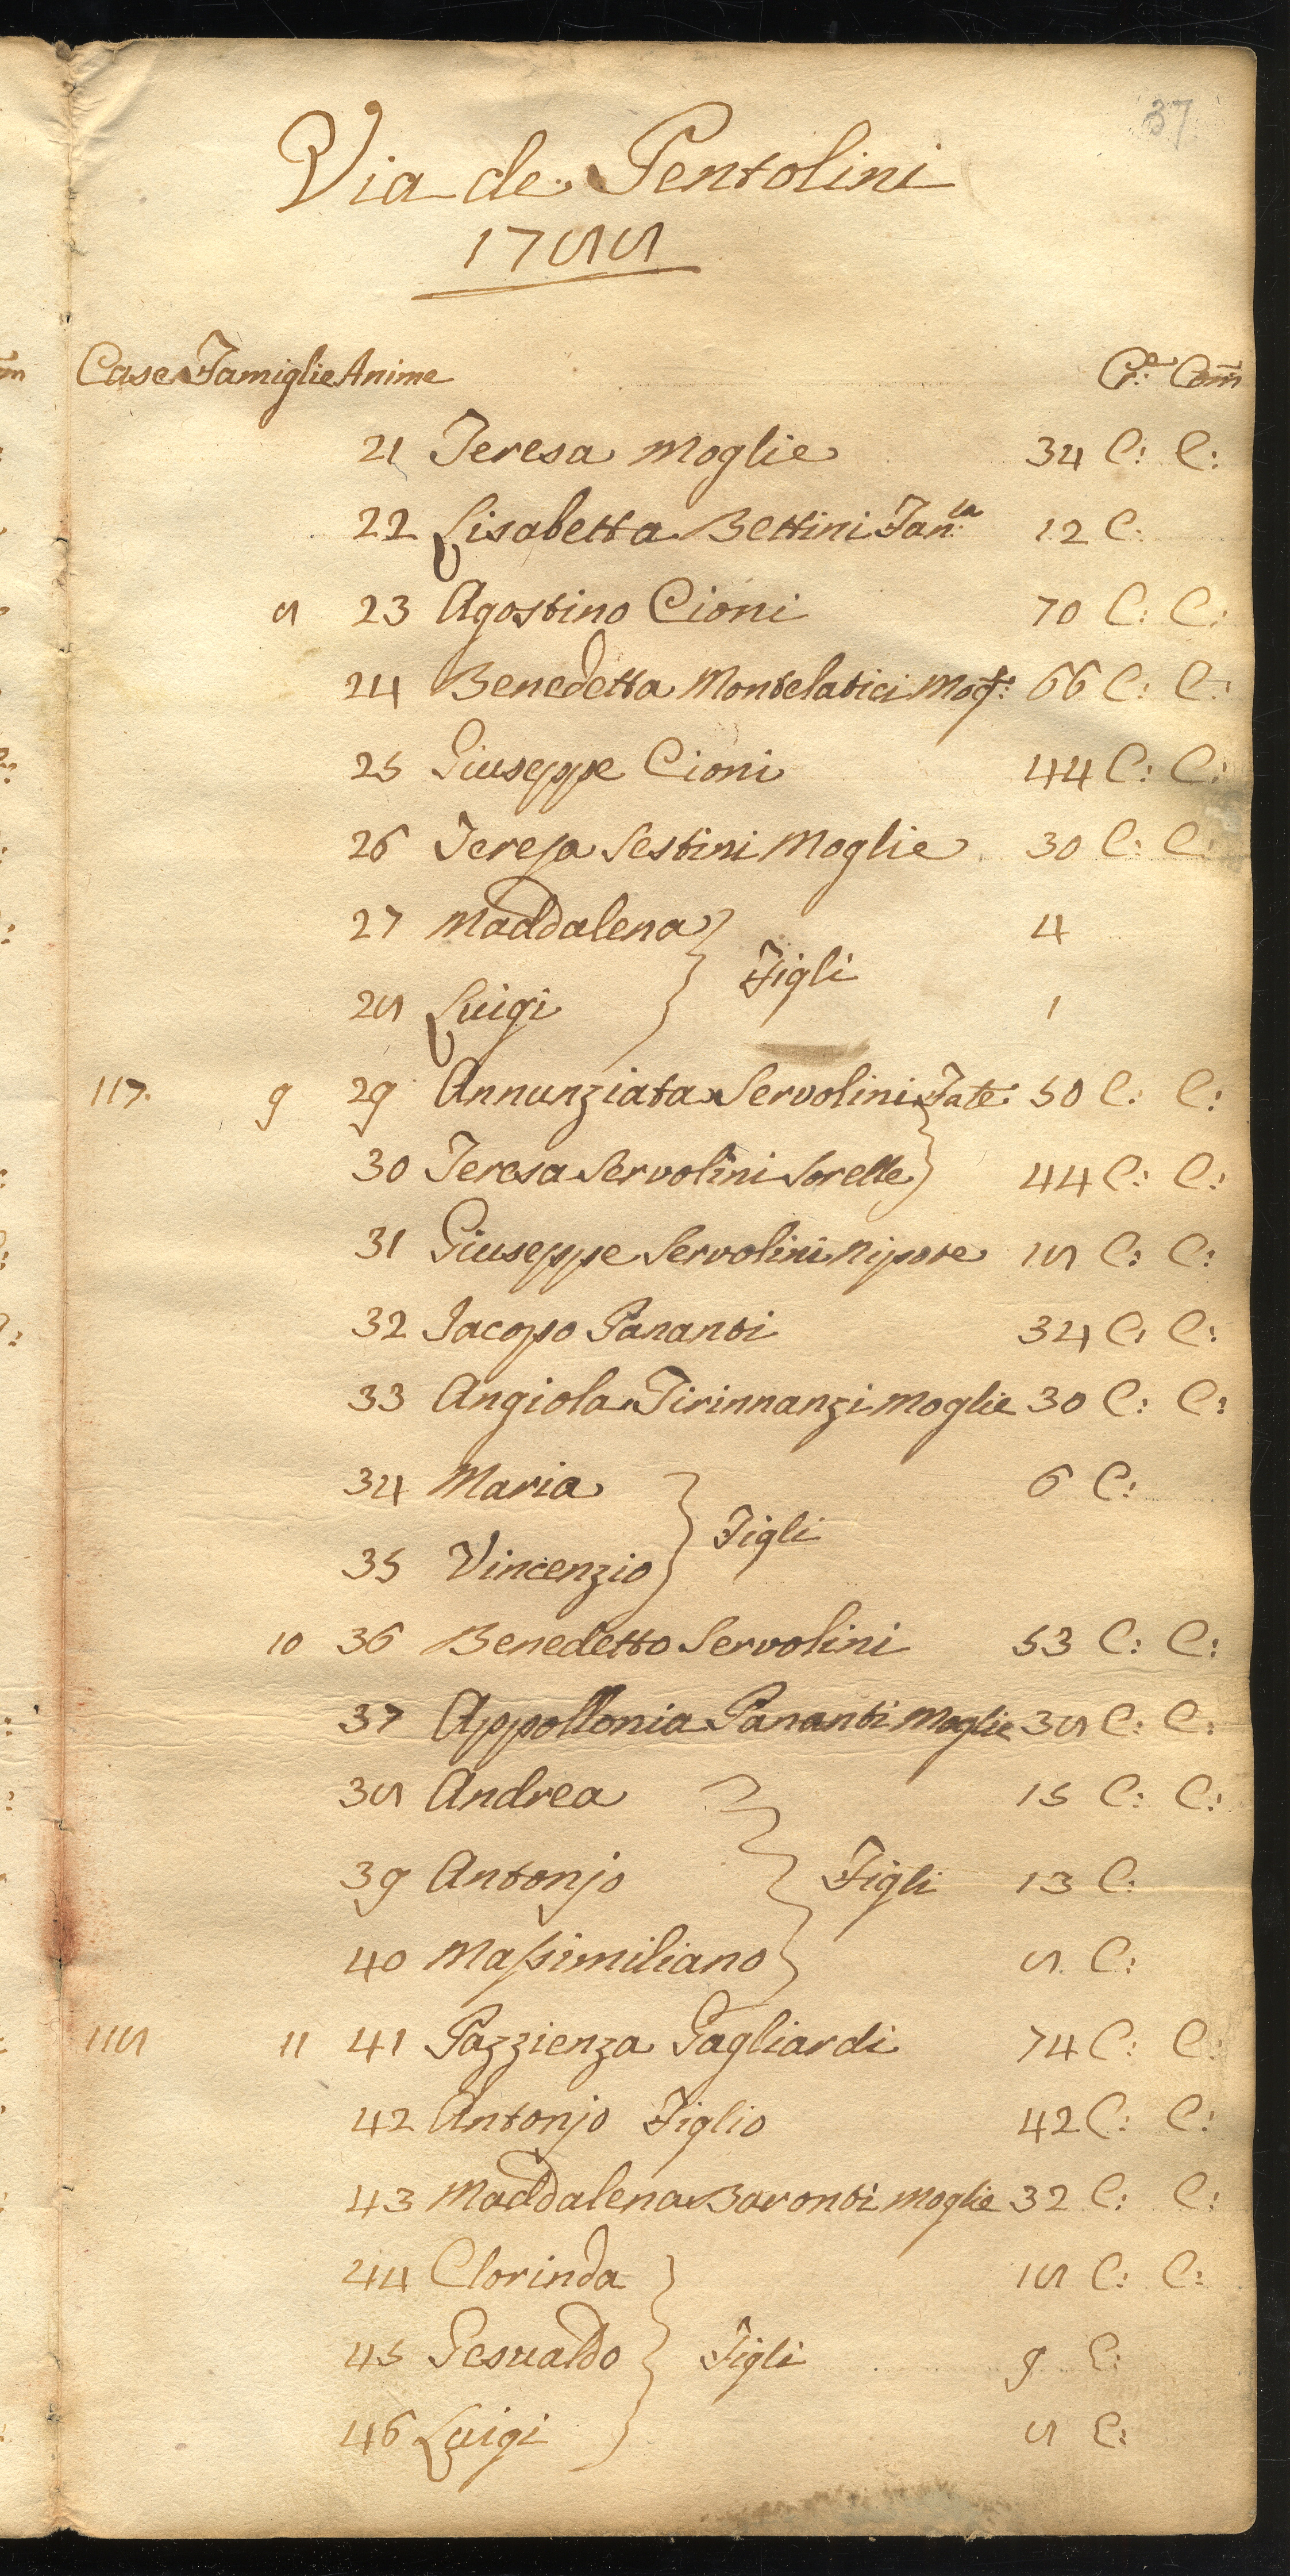 37
Via de Pentolini
1788
Case Famiglie Anime Cr:e Com̃
21 Teresa Moglie 34 C: C:
22 Lisabetta Bettini Fan:la 12 C:
8 23 Agostino Cioni 70 C: C:
24 Benedetta Montelatici Mog:e 66 C: C:
25 Giuseppe Cioni 44 C: C:
26 Teresa Sestini Moglie 30 C: C:
27 Maddalena 4
Figli
28 Luigi 1
117. 9 29 Annunziata Servolini Fate: 50 C: C:
30 Teresa Servolini Sorelle 44 C: C:
31 Giuseppe Servolini Nipote 18 C: C:
32 Jacopo Pananti 34 C: C:
33 Angiola Tirinnanzi Moglie 30 C: C:
34 Maria 6 C:
Figli
35 Vincenzio
10 36 Benedetto Servolini 53 C: C:
37 Appollonia Pananti Moglie 38 C: C:
38 Andrea 15 C: C:
39 Antonjo Figli 13 C:
40 Massimiliano 8 C:
118 11 41 Pazzienza Gagliardi 74 C: C:
42 Antonjo Figlio 42 C: C:
43 Maddalena Baronti Moglie 32 C: C:
44 Clorinda 18 C: C:
45 Gesualdo Figli 9 C:
46 Luigi 8 C: